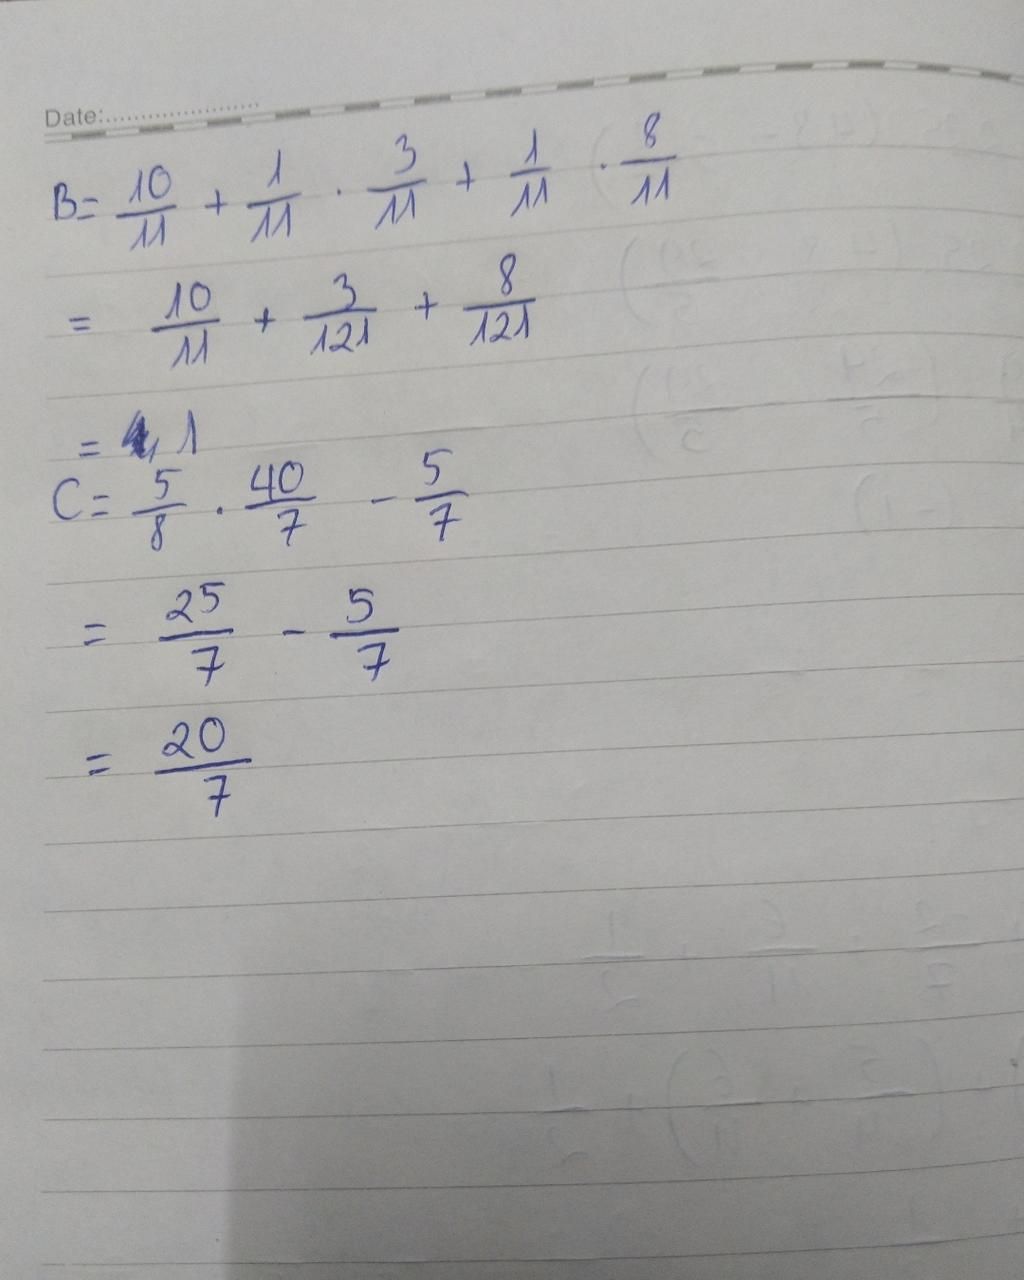 Date:......................
B= 10/11 + 1/11 . 3/11 + 1/11 . 8/11
= 10/11 + 3/121 + 8/121
= 1
C= 5/8 . 40/7 - 5/7
= 25/7 - 5/7
= 20/7